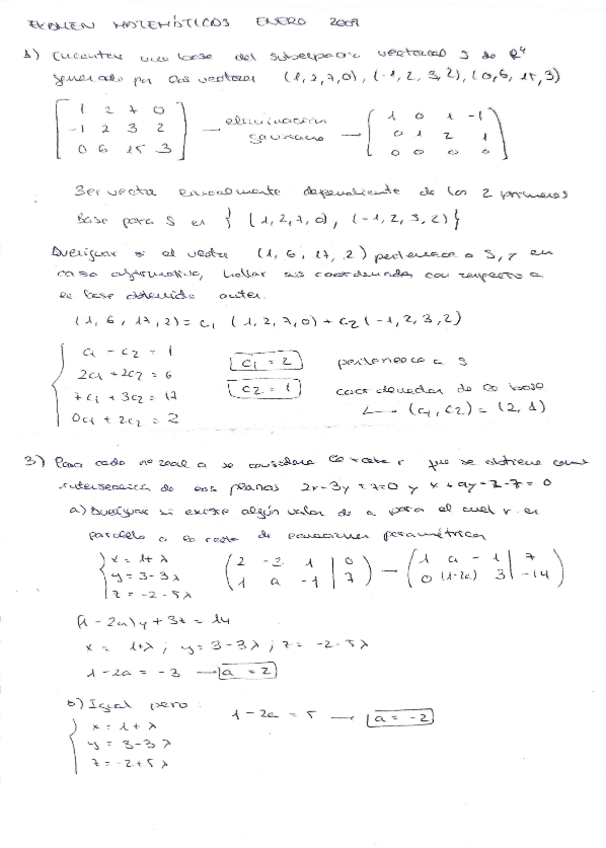 EXAMEN MATEMÁTICAS ENERO 2009
1) Encuentra una base del subespacio vectorial S de R⁴
generado por los vectores (1,2,7,0), (-1,2,3,2), (0,6,15,3)
[1 2 7 0
-1 2 3 2
0 6 15 3] → eliminación gaussiana → (1 0 1 -1
0 1 2 1
0 0 0 0)
3er vector linealmente dependiente de los 2 primeros
Base para S es { (1,2,7,0), (-1,2,3,2) }
Averiguar si el vector (1,6,17,2) pertenece a S, y en
caso afirmativo, hallar sus coordenadas con respecto a
la base obtenida antes.
(1,6,17,2) = c₁ (1,2,7,0) + c₂ (-1,2,3,2)
c₁ - c₂ = 1
2c₁ + 2c₂ = 6
7c₁ + 3c₂ = 17
0c₁ + 2c₂ = 2
c₁ = 2
c₂ = 1
pertenece a S
coordenadas de la base
→ (c₁, c₂) = (2, 1)
3) Para cada nº real a se considera la recta r que se obtiene como
intersección de los planos 2x-3y+z=0 y x+ay-z-7=0
a) Averiguar si existe algún valor de a para el cual r es
paralelo a la recta de ecuaciones paramétrica
x = 1+λ
y = 3-3λ
z = -2-5λ
(2 -3 1 | 0
1 a -1 | 7) — (1 a -1 | 7
0 (1-2a) 3 | -14)
(1-2a)y + 3z = 14
x = 1+λ ; y = 3-3λ ; z = -2-5λ
1-2a = -3 → a = 2
b) Igual pero:
x = 1+λ
y = 3-3λ
z = -2+5λ
1-2a = 5 → a = -2